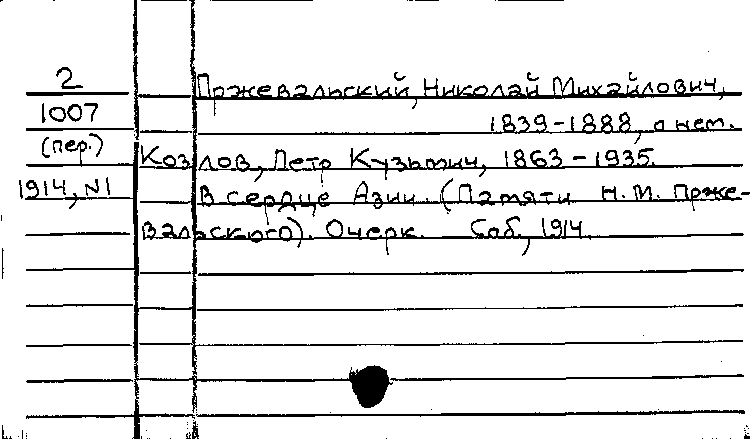 2
1007
(пер.)
1914, N1
Пржевальский, Николай Михайлович,
1839-1888, о нем.
Козлов, Петр Кузьмич, 1863-1935.
В сердце Азии. (Памяти Н.М. Прже-
вальского). Очерк. Спб., 1914.